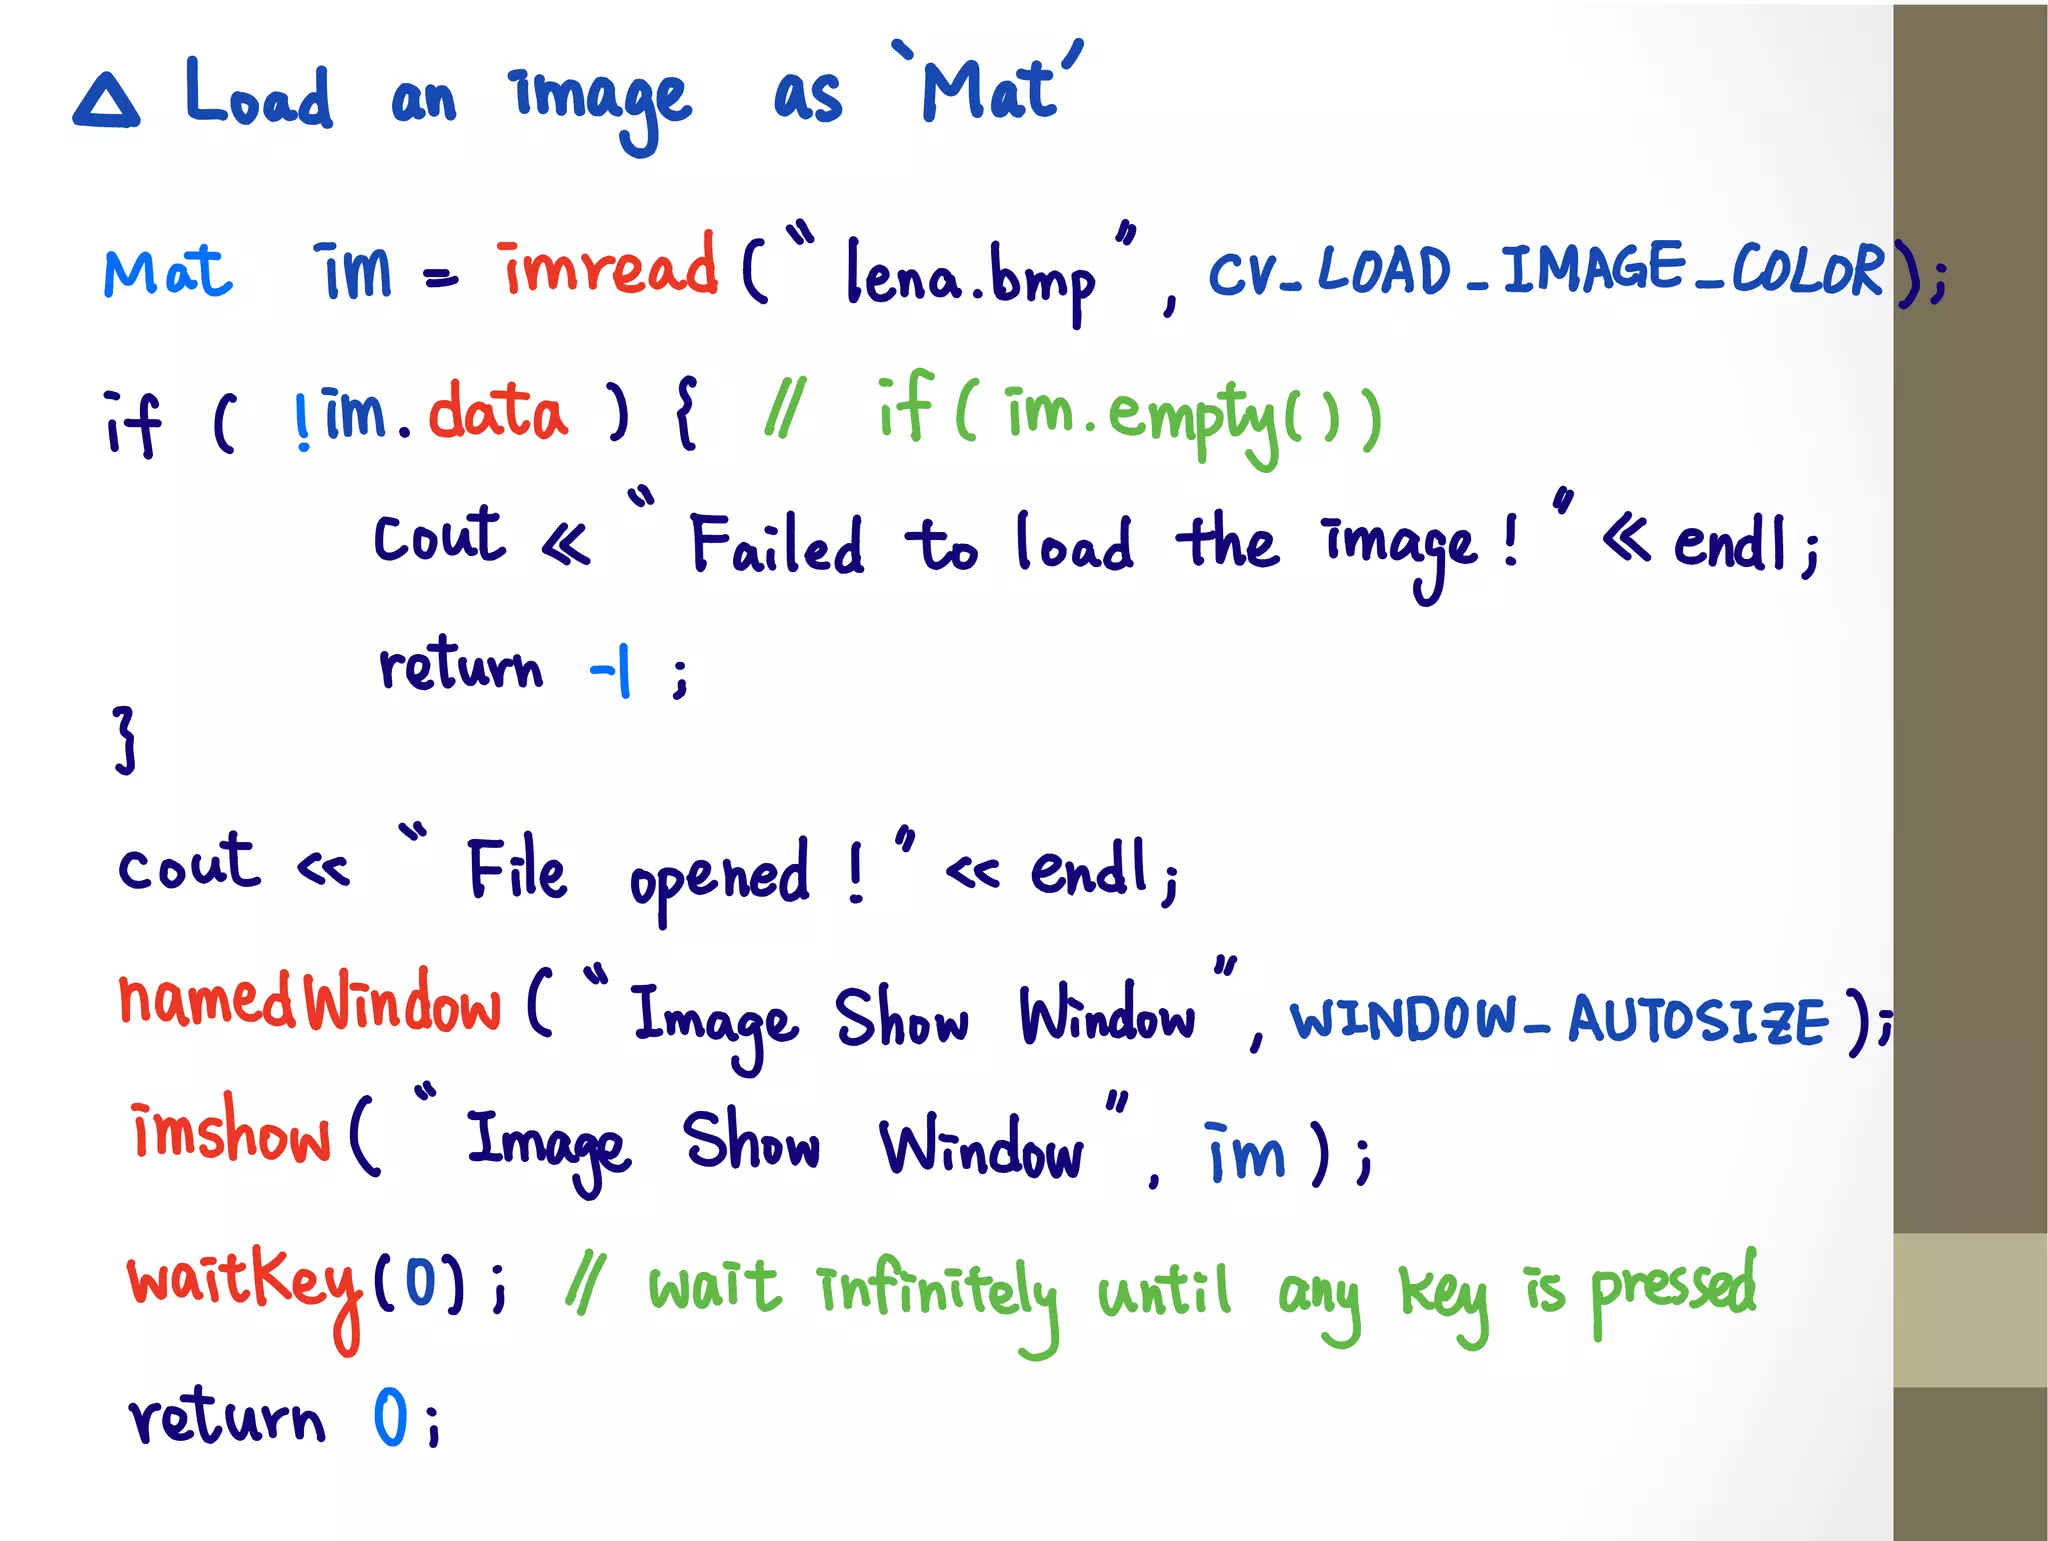 △ Load an image as `Mat'
Mat im = imread("lena.bmp", CV_LOAD_IMAGE_COLOR);
if ( !im.data ) { // if(im.empty())
cout << "Failed to load the image!" << endl;
return -1;
}
cout << "File opened!" << endl;
namedWindow("Image Show Window", WINDOW_AUTOSIZE);
imshow("Image Show Window", im);
waitKey(0); // wait infinitely until any key is pressed
return 0;